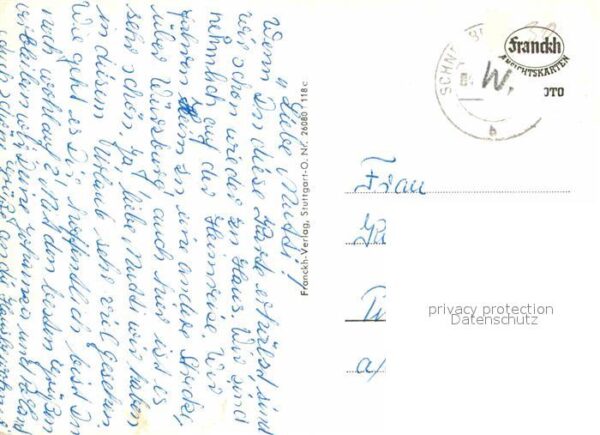 Liebe Muddi!
Wenn Du diese Karte erhältst sind
wir schon wieder zu Haus. Wir sind
nehmlich auf der Heimreise. Wir
fahren Heim so eine andre Strecke,
über Würzburg auch hier ist es
sehr schön. Ja, liebe Muddi wir haben
in diesem Urlaub sehr viel gesehen
Wie geht es Dir, hoffendlich bist Du
noch wohlauf? Mit den besten Grüßen
verbleiben wir Deine Johannes und
Franckh-Verlag, Stuttgart-O. Nr. 26080/118c
Franckh
ANSICHTSKARTEN
OTO
SCHN
W.
b
Frau
a/
privacy protection
Datenschutz